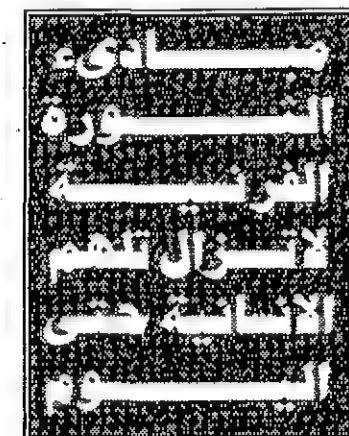 مبادىء
الثورة
الفرنسية
لا تزال تلهم
الانسانية حتى
اليوم